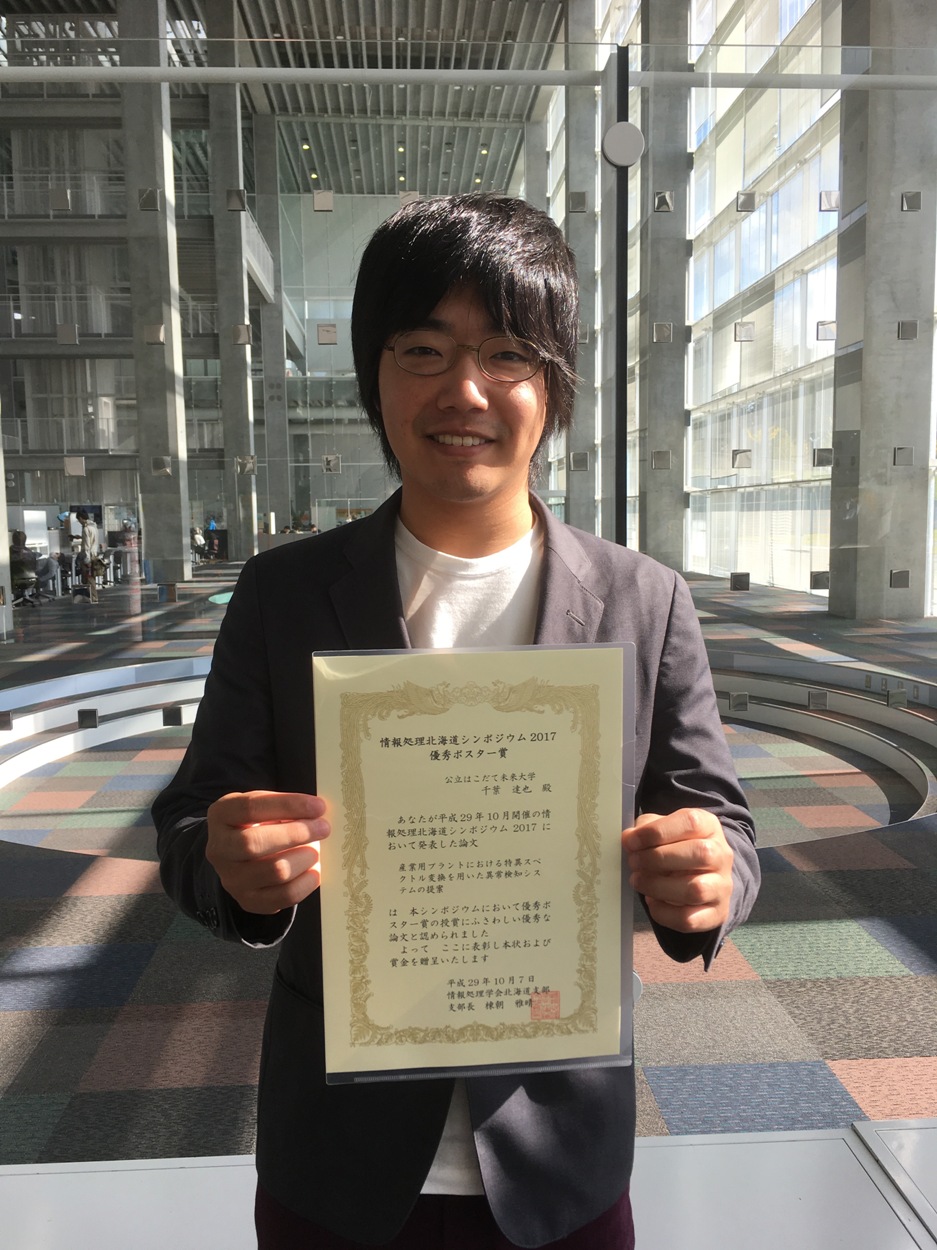 情報処理北海道シンポジウム 2017
優秀ポスター賞
公立はこだて未来大学
千葉 達也 殿
あなたが平成 29 年 10 月開催の情
報処理北海道シンポジウム 2017 に
おいて発表した論文
産業用プラントにおける特異スペ
クトル変換を用いた異常検知シス
テムの提案
は 本シンポジウムにおいて優秀ポ
スター賞の授賞にふさわしい優秀な
論文と認められました
よって ここに表彰し本状および
賞金を贈呈いたします
平成 29 年 10 月 7 日
情報処理学会北海道支部
支部長 棟朝 雅晴